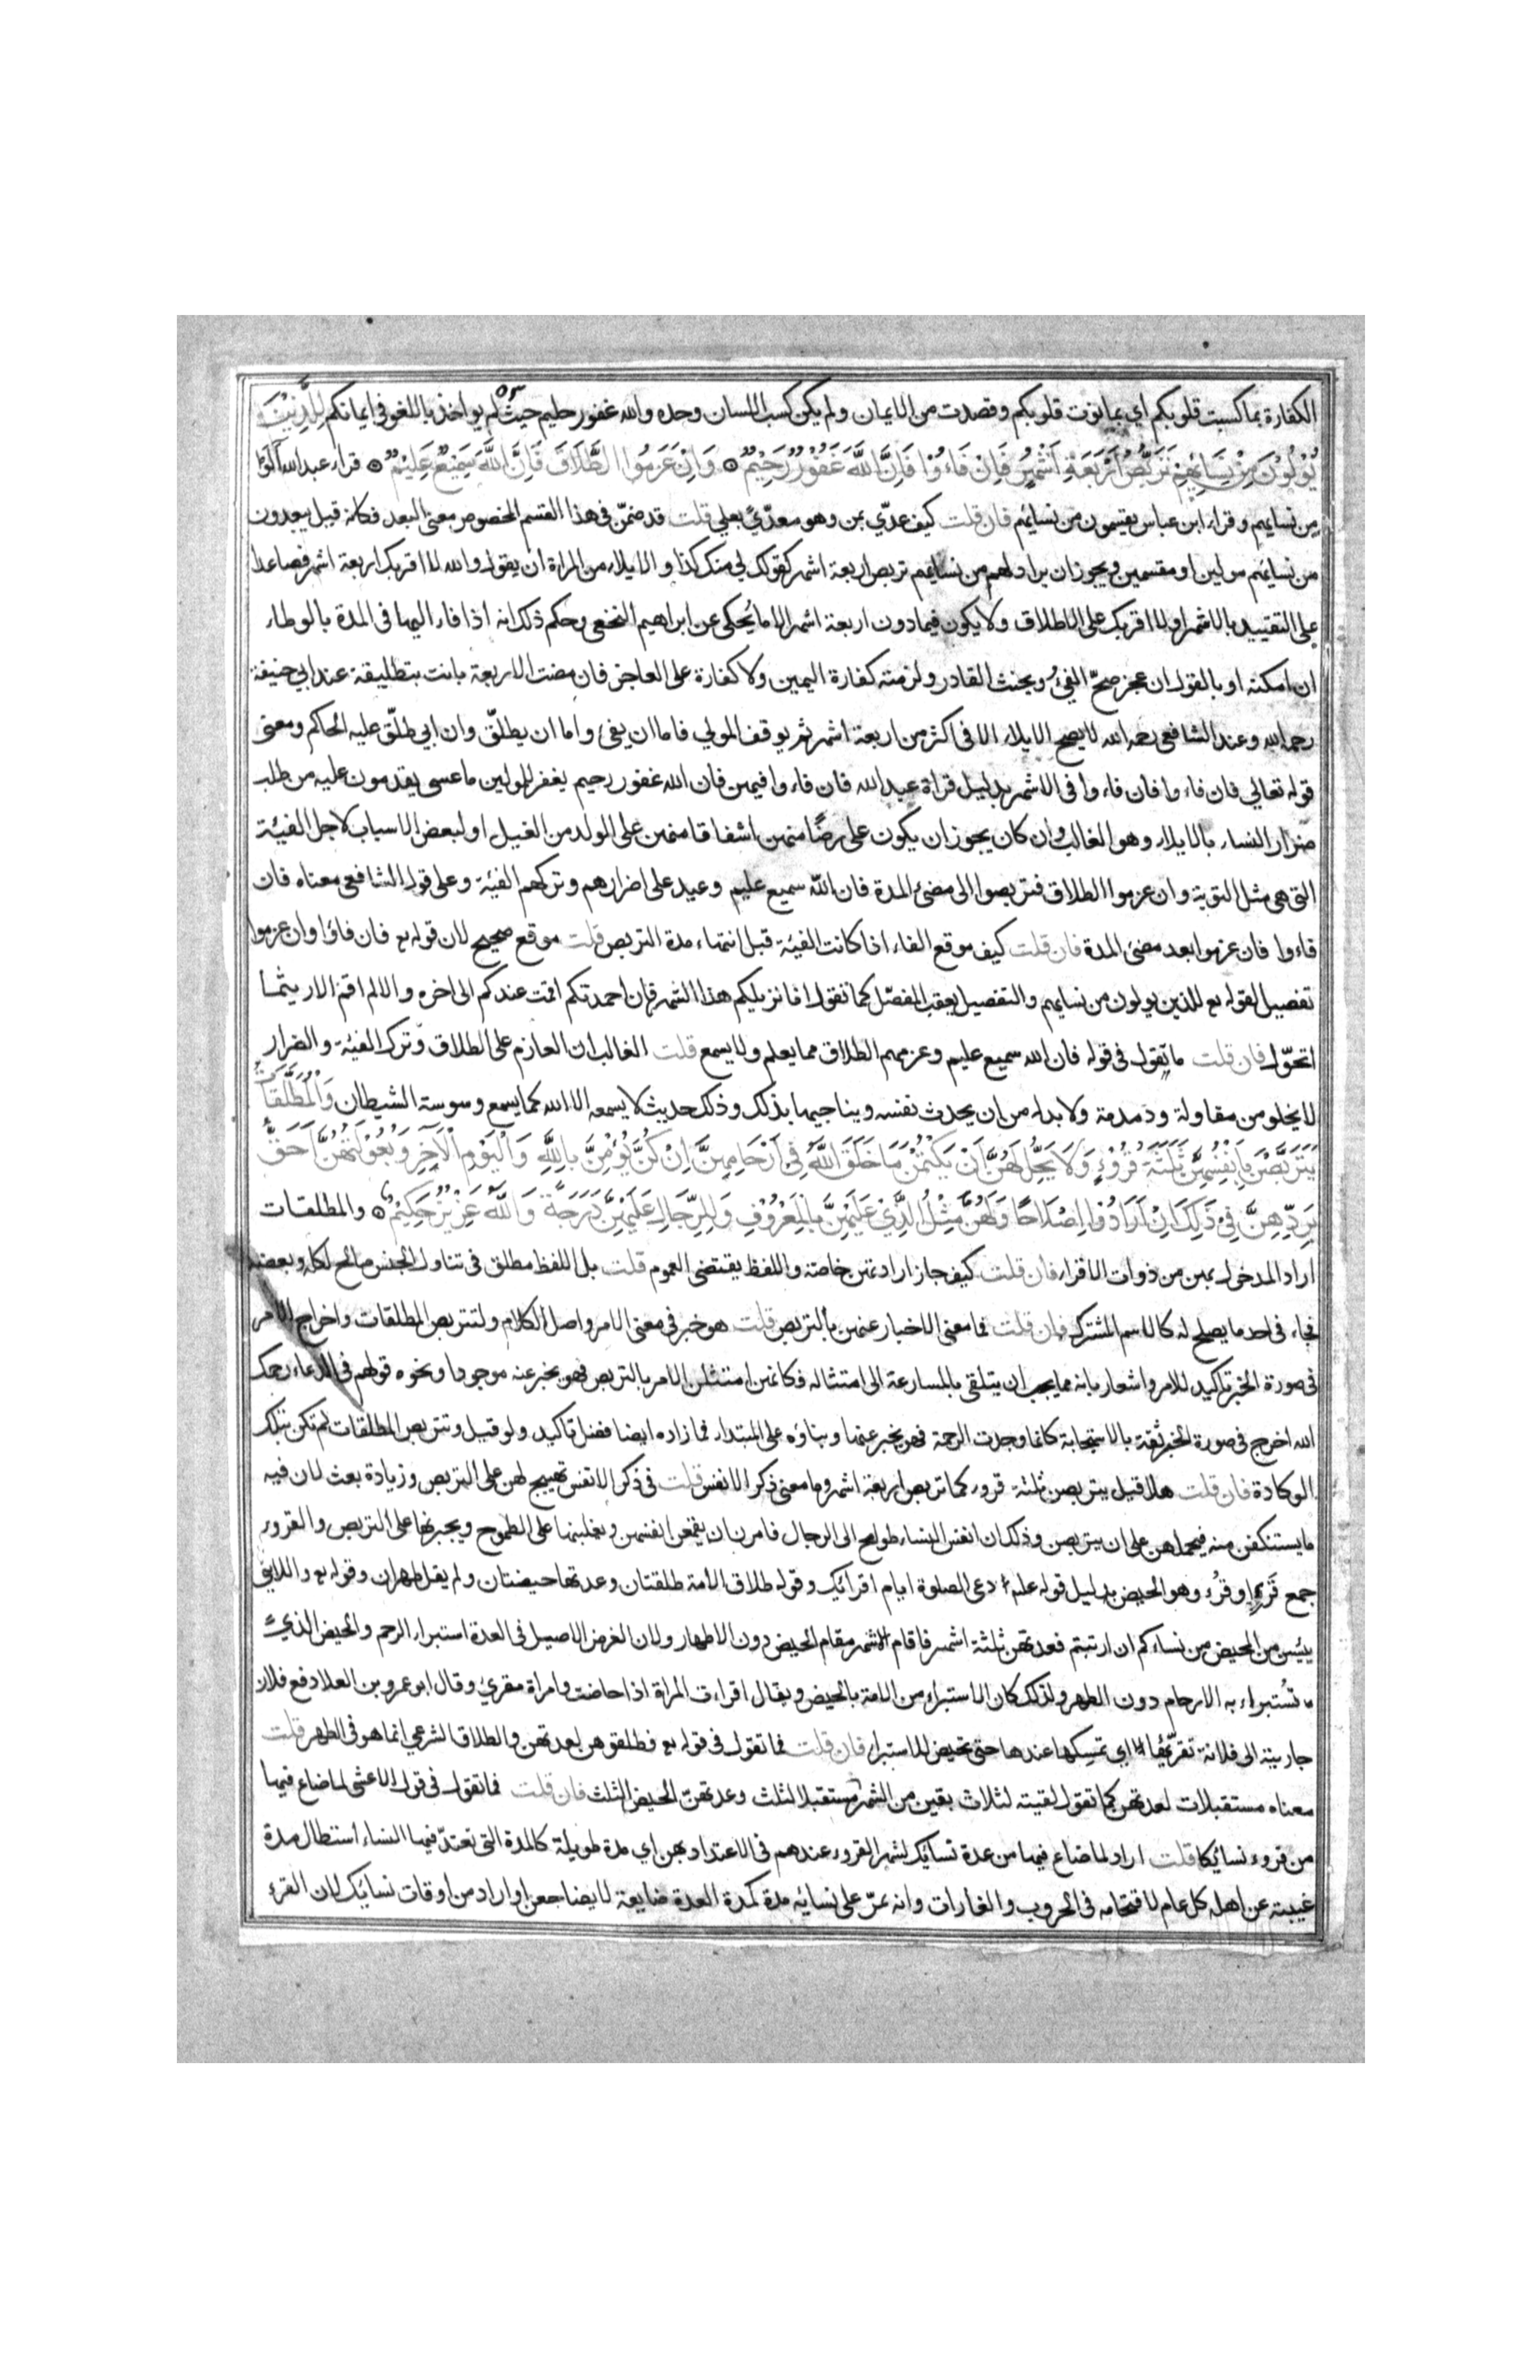 الكفارة بما كسبت قلوبكم اي بما نوت قلوبكم وقصدت من الايمان ولم يكن كسب اللسان وحده والله غفور حليم حيث لم يواخذ باللغو في ايمانكم لِلَّذِيْنَ
يُوْلُوْنَ مِنْ نِسَائِهِمْ تَرَبُّصُ اَرْبَعَةِ اَشْهُرٍ فَاِنْ فَاءُوْا فَاِنَّ اللَّهَ غَفُوْرٌ رَحِيْمٌ وَاِنْ عَزَمُوا الطَّلَاقَ فَاِنَّ اللَّهَ سَمِيْعٌ عَلِيْمٌ قراء عبدالله آلوا
من نسايهم وقراء ابن عباس يقسمون من نسائهم فان قلت كيف عدّي بمن وهو معدّيً بعلي قلت قد ضمّن في هذا القسم المخصوص معنى البعد فكانه قيل يبعدون
من نسايهم مولين او مقسمين ويجوز ان يراد لهم من نسايهم تربص اربعة اشهر كقولك لي منك كذا والايلاء من المراة ان يقول والله لا اقربك اربعة اشهر فصاعدا
على التقييد بالاشهر او لا اقربك على الاطلاق ولا يكون فيما دون اربعة اشهر الا ما يُحكى عن ابراهيم النخعي وحكم ذلك انه اذا فاء اليها في المدة بالوطاء
ان امكنه او بالقول ان عجز صحّ الفيُ وبحنث القادر ولزمته كفارة اليمين ولا كفارة على العاجز فان مضت الاربعة بانت بتطليقة عند ابي حنيفة
رحمه الله وعند الشافعي رحمه الله لا يصح الايلاء الا في اكثر من اربعة اشهر ثم يوقف المولي فاما ان يفئ واما ان يطلّق وان ابي طلّق عليه الحاكم ومعنى
قوله تعالي فان فاءوا فان فاءوا في الاشهر بدليل قراة عبدالله فان فاءوا فيهن فان الله غفور رحيم يغفر للمولين ما عسى يقدمون عليه من طلب
ضرار النساء بالايلاء وهو الغالب وان كان يجوز ان يكون على رضًا منهن اشفاقا منهن على الولد من الغيل او لبعض الاسباب لاجل الفيئة
التي هي مثل التوبة وان عزموا الطلاق فتربصوا الى مضئ المدة فان الله سميع عليم وعيد على اضرارهم وتركهم الفيئة وعلى قول الشافعي معناه فان
فاءوا فان عزموا بعد مضئ المدة فان قلت كيف موقع الفاء اذا كانت الفيئة قبل انتهاء مدة التربص قلت موقع صحيح لان قوله تع فان فاؤا وان عزموا
تفصيل لقوله تع للذين يولون من نسايهم والتفصيل يعقب المفصّل كما تقول انا نزيلكم هذا الشهر فان احمدتكم اقمت عندكم الى اخره والا لم اقم الا ريثما
اتحوّل فان قلت ما تقول في قوله فان الله سميع عليم وعزمهم الطلاق مما يعلم ولا يسمع قلت الغالب ان العازم على الطلاق وترك الفيئة والضرار
لا يخلو من مقاولة ودمدمة ولا بد له من ان يحدث نفسه ويناجيها بذلك وذلك حديث لا يسمعه الا الله كما يسمع وسوسة الشيطان وَالْمُطَلَّقَاتُ
يَتَرَبَّصْنَ بِاَنْفُسِهِنَّ ثَلٰثَةَ قُرُوْءٍ وَلَا يَحِلُّ لَهُنَّ اَنْ يَكْتُمْنَ مَا خَلَقَ اللَّهُ فِي اَرْحَامِهِنَّ اِنْ كُنَّ يُؤْمِنَّ بِاللَّهِ وَالْيَوْمِ الْآخِرِ وَبُعُوْلَتُهُنَّ اَحَقُّ
بِرَدِّهِنَّ فِيْ ذَلِكَ اِنْ اَرَادُوْا اِصْلَاحًا وَلَهُنَّ مِثْلُ الَّذِيْ عَلَيْهِنَّ بِالْمَعْرُوْفِ وَلِلرِّجَالِ عَلَيْهِنَّ دَرَجَةٌ وَاللَّهُ عَزِيْزٌ حَكِيْمٌ والمطلقات
اراد المدخول بهن من ذوات الاقراء فان قلت كيف جاز ارادتهن خاصة واللفظ يقتضي العموم قلت بل اللفظ مطلق في تناول الجنس صالح لكله وبعضه
فجاء في احد ما يصلح له كالاسم المشترك فان قلت فما معنى الاخبار عنهن بالتربص قلت هو خبر في معنى الامر واصل الكلام ولتتربص المطلقات واخراج الامر
في صورة الخبر تاكيد للامر واشعار بانه مما يجب ان يتلقى بالمسارعة الى امتثاله فكانهن امتثلن الامر بالتربص فهو يخبر عنه موجودا ونحوه قولهم في الدعاء رحمك
الله اخرج في صورة الخبر ثقة بالاستجابة كانما وجدت الرحمة فهو يخبر عنها وبناؤه على المبتداء مما زاده ايضا فضل تاكيد ولو قيل وتتربص المطلقات لم تكن بتلك
الوكادة فان قلت هلا قيل يتربصن ثلثة قروء كما تربص اربعة اشهر وما معنى ذكر الانفس قلت في ذكر الانفس تهييج لهن على التربص وزيادة بعث لان فيه
ما يستنكفن منه فيحملهن على ان يتربصن وذلك ان انفس النساء طوامح الى الرجال فامرن ان يقمعن انفسهن ويغلبنها على الطموح ويجبرنها على التربص والقروء
جمع قَرْءٍ او قُرْء وهو الحيض بدليل قوله علم دعي الصلوة ايام اقرائك وقوله طلاق الامة طلقتان وعدتها حيضتان ولم يقل طهران وقوله تع واللائي
يئسن من المحيض من نسائكم ان ارتبتم فعدتهن ثلثة اشهر فاقام الاشهر مقام الحيض دون الاطهار ولان الغرض الاصيل في العدة استبراء الرحم والحيض الذي
تُستبراء به الارحام دون الطهر ولذلك كان الاستبراء من الامة بالحيض ويقال اقراءت المراة اذا حاضت وامراة مقرئ وقال ابو عمرو بن العلا دفع فلان
جاريته الى فلانة تقرّئها اي تمسكها عندها حتى تحيض للاستبراء فان قلت فما تقول في قوله تع فطلقوهن لعدتهن والطلاق الشرعي انما هو في الطهر قلت
معناه مستقبلات لعدتهن كما تقول لقيته لثلاث بقين من الشهر مستقبلا لثلث وعدتهنّ الحيض الثلث فان قلت فما تقول في قول الاعشى لما ضاع فيها
من قروء نسائكا قلت اراد لما ضاع فيها من عدة نسائك لشهر القروء عندهم في الاعتداد بهن اي مدة طويلة كالمدة التي تعتدّ فيها النساء استطال مدة
غيبته عن اهله كل عام لاقتحامه في الحروب والغارات وانه تمرّ على نسائه مدة كمدة العدة ضايعة لا يضاجعن او اراد من اوقات نسائك لان القرء